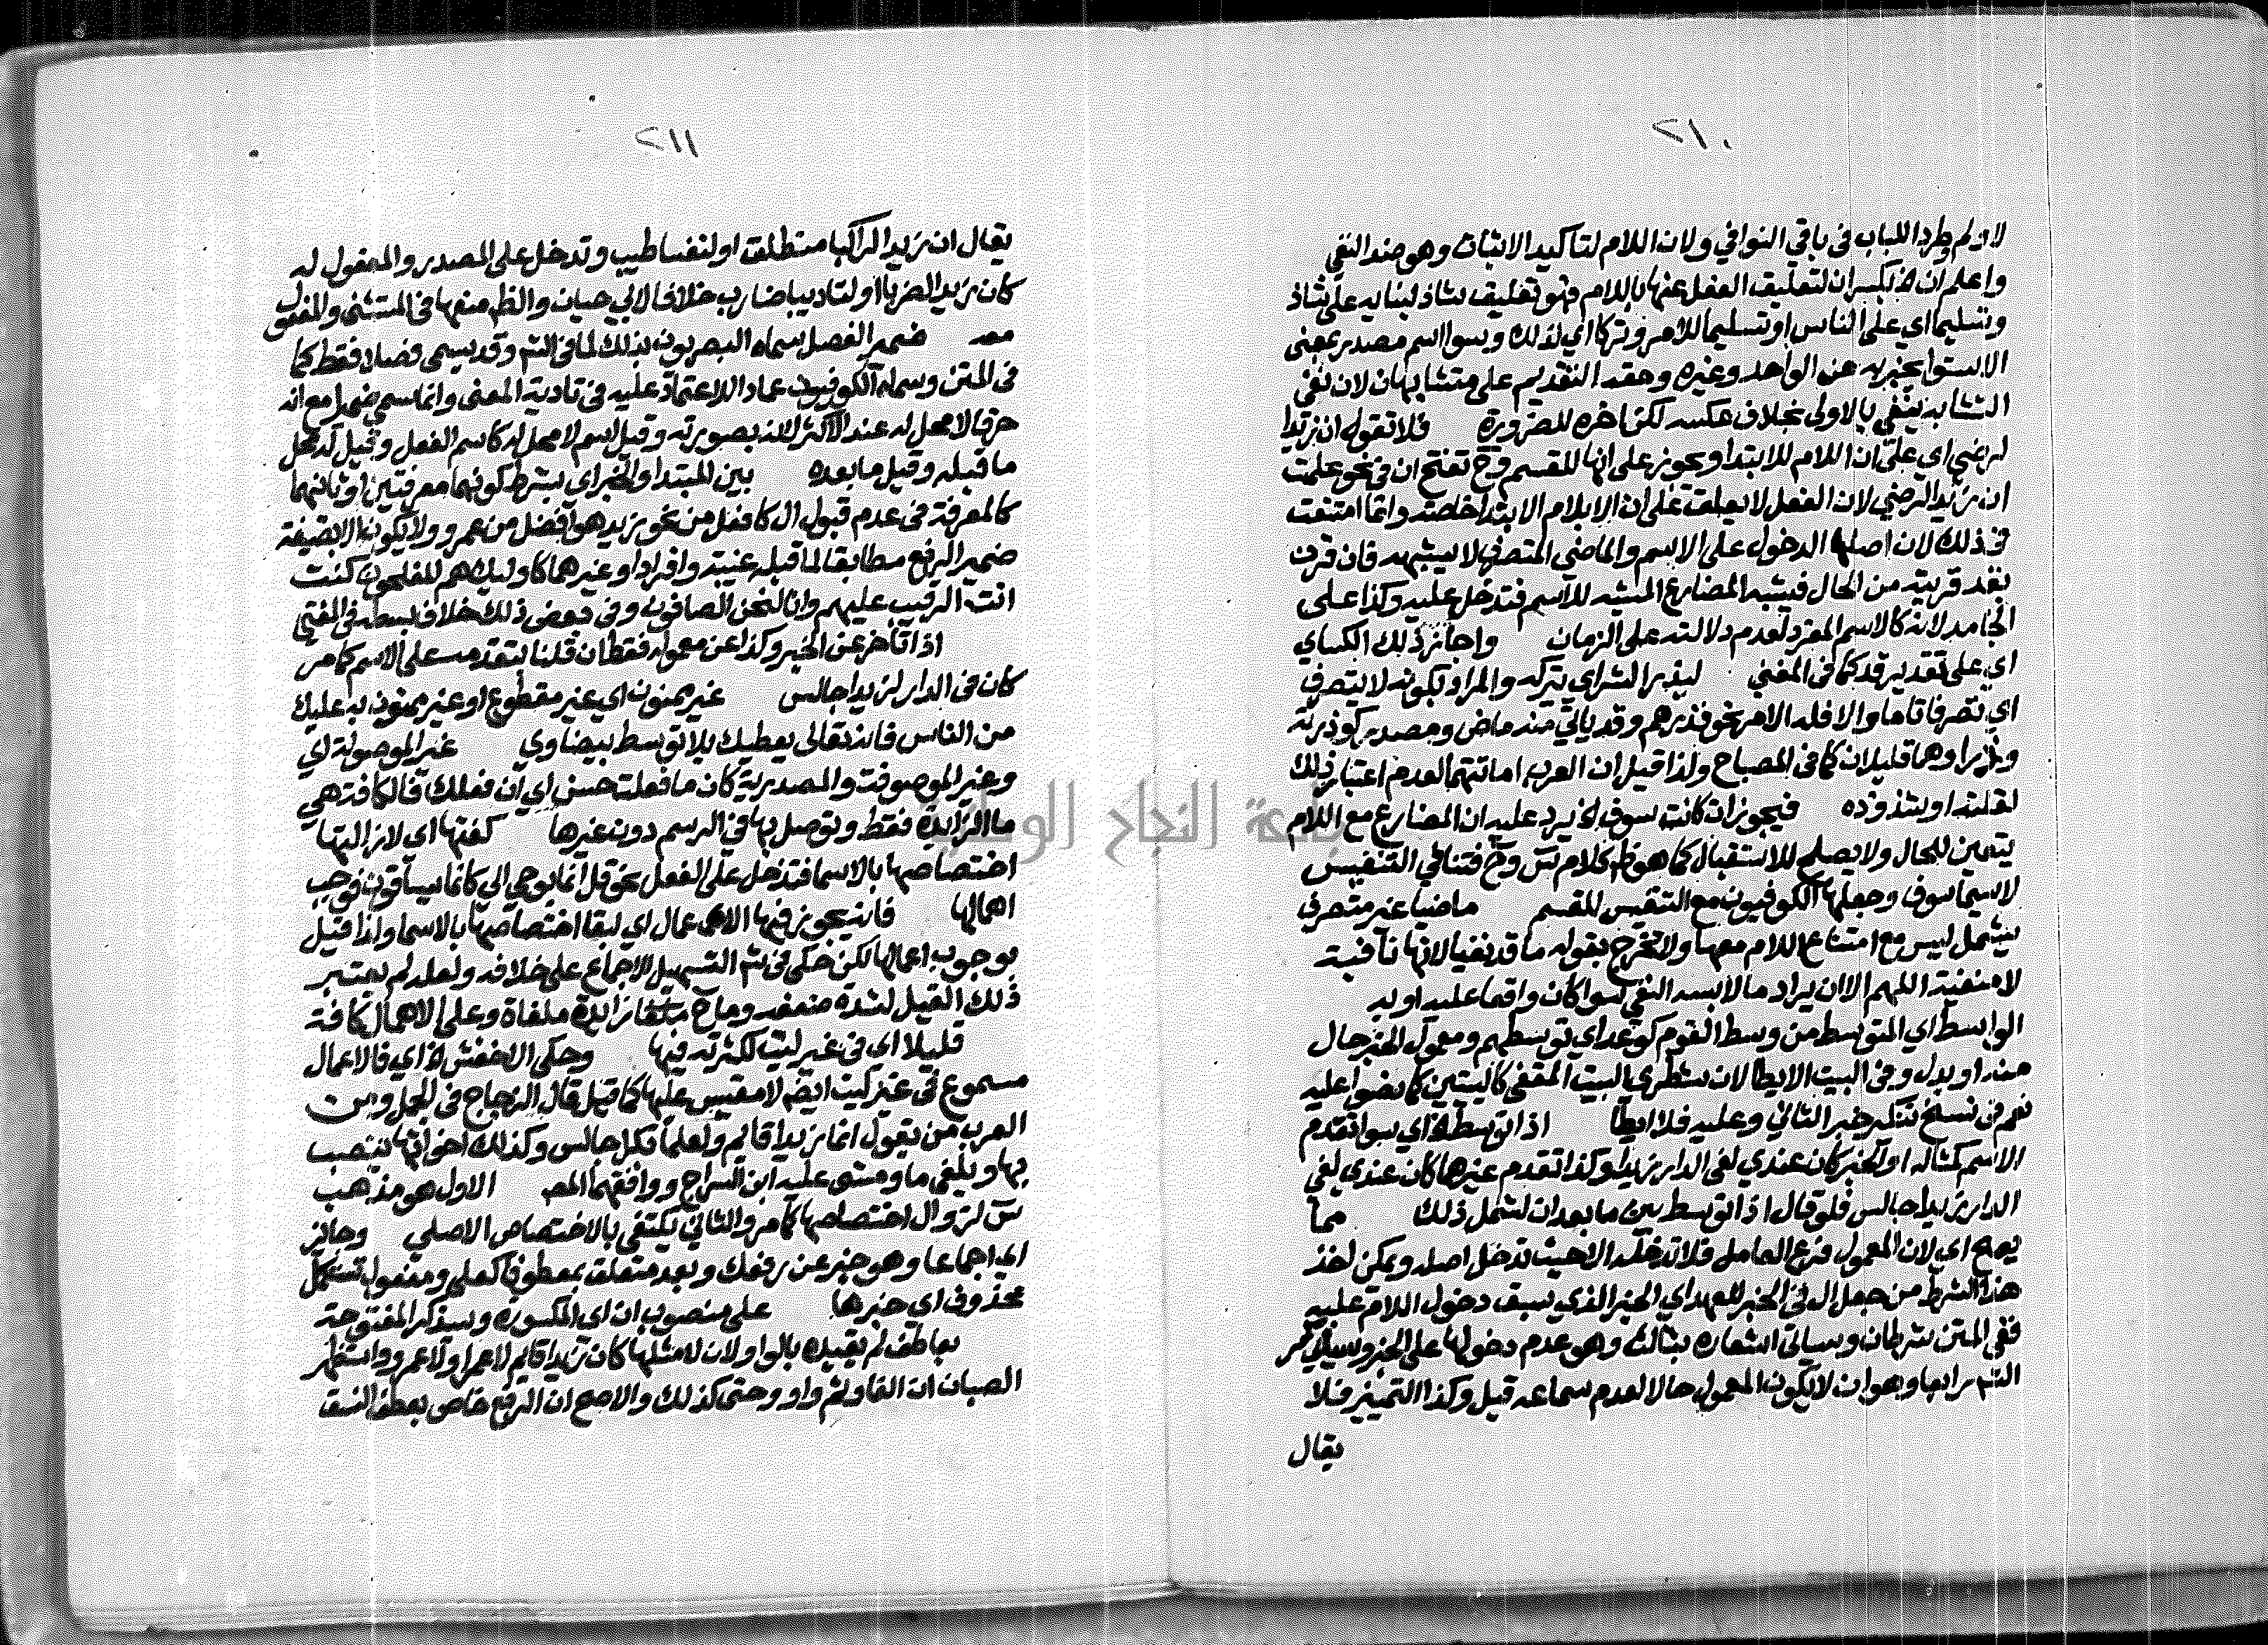 ٢١٠
لان لم وطرد اللباب فى باقي النوافي ولان اللام لتاكيد الاثبات وهو ضد النفي
واعلم ان بكسر ان لتعليق الفعل عنها باللام فهو تعليق شاذ لبنايه على شاذ
وتسليما اي على الناس او تسليما للامر وتركا اي لذلك وسوا اسم مصدر بمعنى
الاستوا يخبر به عن الواحد وغيره وحقه التقديم على متشابهان لان نفي
التشابه ينفي بالاولى بخلاف عكسه لكن اخره للضرورة فلا تقول ان زيدا
لرضي اي على ان اللام للابتدا ويجوز على انها للقسم وح تفتح ان فى نحو علمت
ان زيدا لرضي لان الفعل لا يعلق على ان الا بلام الابتدا خاصة وانما امتنعت
فى ذلك لان اصلها الدخول على الاسم والماضى المتصرف لا يشبهه فان قرن
بقد قربته من الحال فيشبه المضارع المشبه للاسم فتدخل عليه وكذا على
الجامد لانه كالاسم المفرد لعدم دلالته على الزمان واجاز ذلك الكساي
اي على تقدير قد كما فى المغني ليذر الشر اي يتركه والمراد بكونه لا يتصرف
اي تصرفا تاما والا فله الامر نحو فذرهم وقد ياتي منه ماض ومصدر كوذرته
وذرا وهما قليلان كما فى المصباح ولذا قيل ان العرب اماتتهما لعدم اعتبار ذلك
لقلته او شذوذه فيجوز ان كانت سوف يرد عليه ان المضارع مع اللام
يتعين للحال ولا يصلح للاستقبال كما هو ظ كلام س وح فتنافي التنفيس
لاسيما سوف وجعلها الكوفيون مع التنفيس للقسم ماضيا غير متصرف
يشمل ليس مع امتناع اللام معها ولا تخرج بقوله ما قد نفيا لانها نافية
لا منفية اللهم الا ان يراد ما لابسه النفي سوا كان واقعا عليه او به
الواسط اي المتوسط من وسط القوم كوعد اي توسطهم ومعمول الخبر حال
منه او بدل وفى البيت الايطا لان شطري البيت المقفى كالبيتين كما نصوا عليه
نعم فى نسخ تنكير خبر الثاني وعليه فلا ايطا اذا توسط اي سوا تقدم
الاسم كمثاله او الخبر كان عندي لفى الدار زيدا وكذا تقدم غيرها كان عندي لفى
الدار زيدا جالس فلو قال اذا توسط بين ما بعد ان لشمل ذلك مما
يصح اي لان المعمول فرع العامل فلا تدخله الا حيث تدخل اصله ويمكن اخذ
هذا الشرط من جعل ال فى الخبر للعهد اي الخبر الذي سبق دخول اللام عليه
ففى المتن شرطان وسياتى اشعاره بثالث وهو عدم دخولها على الخبر
الش رابعا وهو ان لا يكون المعمول حالا لعدم سماعه قيل وكذا التمييز فلا
يقال
٢١١
يقال ان زيدا لراكبا منطلق او لنفسا طيب وتدخل على المصدر والمفعول له
كان زيدا لضربا او لتاديبا ضارب خلافا لابي حيان والظ منعها فى المستثنى والمفعول
معه ضمير الفصل سماه البصريون بذلك لما فى الش وقد يسمى فصلا فقط كما
فى المتن وسماه الكوفيون عمادا للاعتماد عليه فى تادية المعنى وانما سمي ضميرا مع انه
حرف لا محل له عند الاكثر لانه بصورته وقيل اسم لا محل له كاسم الفعل وقيل له محل
ما قبله وقيل ما بعده بين المبتدا والخبر اي بشرط كونهما معرفتين او ثانيهما
كالمعرفة فى عدم قبول ال كافعل من نحو زيد هو افضل من عمرو ولا يكون الا بصيغة
ضمير الرفع مطابقا لما قبله غيبة وافرادا وغيرهما كاوليك هم المفلحون كنت
انت الرقيب عليهم وانا لنحن الصافون وفى بعض ذلك خلاف بسطه فى المغني
اذا تاخر عن الخبر وكذا عن معموله فقط ان قلنا بتقدمه على الاسم كما مر
كان فى الدار لزيدا جالس غير ممنون اي غير مقطوع او غير ممنون به عليك
من الناس فانه تعالى يعطيك بلا توسط بيضاوي غير الموصولة اي
وغير الموصوفة والمصدرية كان ما فعلت حسن اي ان فعلك فالكافة هي
ما الزايدة فقط وتوصل بها فى الرسم دون غيرها كفتها اي لازالتها
اختصاصها بالاسما فتدخل على الفعل نحو قل انما يوحى الي كانما يساقون فوجب
اهمالها فانه يجوز فيها الاعمال اي لبقا اختصاصها بالاسما ولذا قيل
بوجوب اعمالها لكن حكى فى ش التسهيل الاجماع على خلافه ولعله لم يعتبر
ذلك القيل لشدة ضعفه وما ح زايدة ملغاة وعلى الاهمال كافة
قليلا اي فى غير ليت لكثرته فيها وحكى الاخفش اي فالاعمال
مسموع فى غير ليت ايضا لا مقيس عليها كما قيل قال الزجاج فى الجمل ومن
العرب من يقول انما زيدا قايم ولعلما بكرا جالس وكذلك اخواتها تنصب
بها ويلغى ما ومشى عليه ابن السراج ووافقهما المص الاول هو مذهب
س لزوال اختصاصها كما مر والثاني يكتفى بالاختصاص الاصلي وجائز
اي اجماعا وهو خبر عن رفعك وبعد متعلق بمعطوفا كعلى ومفعول تستكمل
محذوف اي خبرها على منصوب ان اي المكسورة وسيذكر المفتوحة
بعاطف لم يقيده بالواو لان لا مثلها كان زيدا قايم لا عمرا ولا عمرو واستظهر
الصبان ان الفا وثم واو وحتى كذلك والاصح ان الرفع خاص بعطف النسق